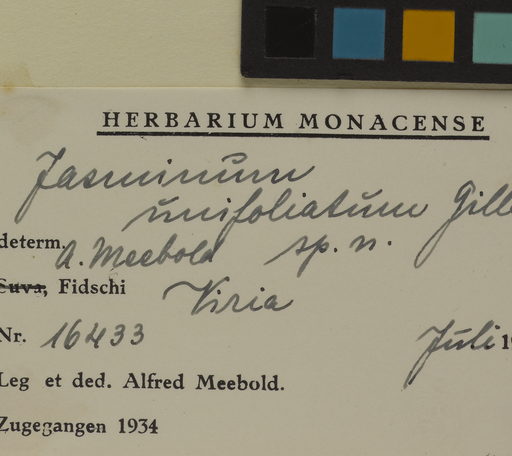 HERBARIUM MONACENSE
Jasminum
unifoliatum Gill
determ. A. Meebold sp. n.
Suva, Fidschi Viria
Nr. 16433 Juli 19
Leg et ded. Alfred Meebold.
Zugegangen 1934